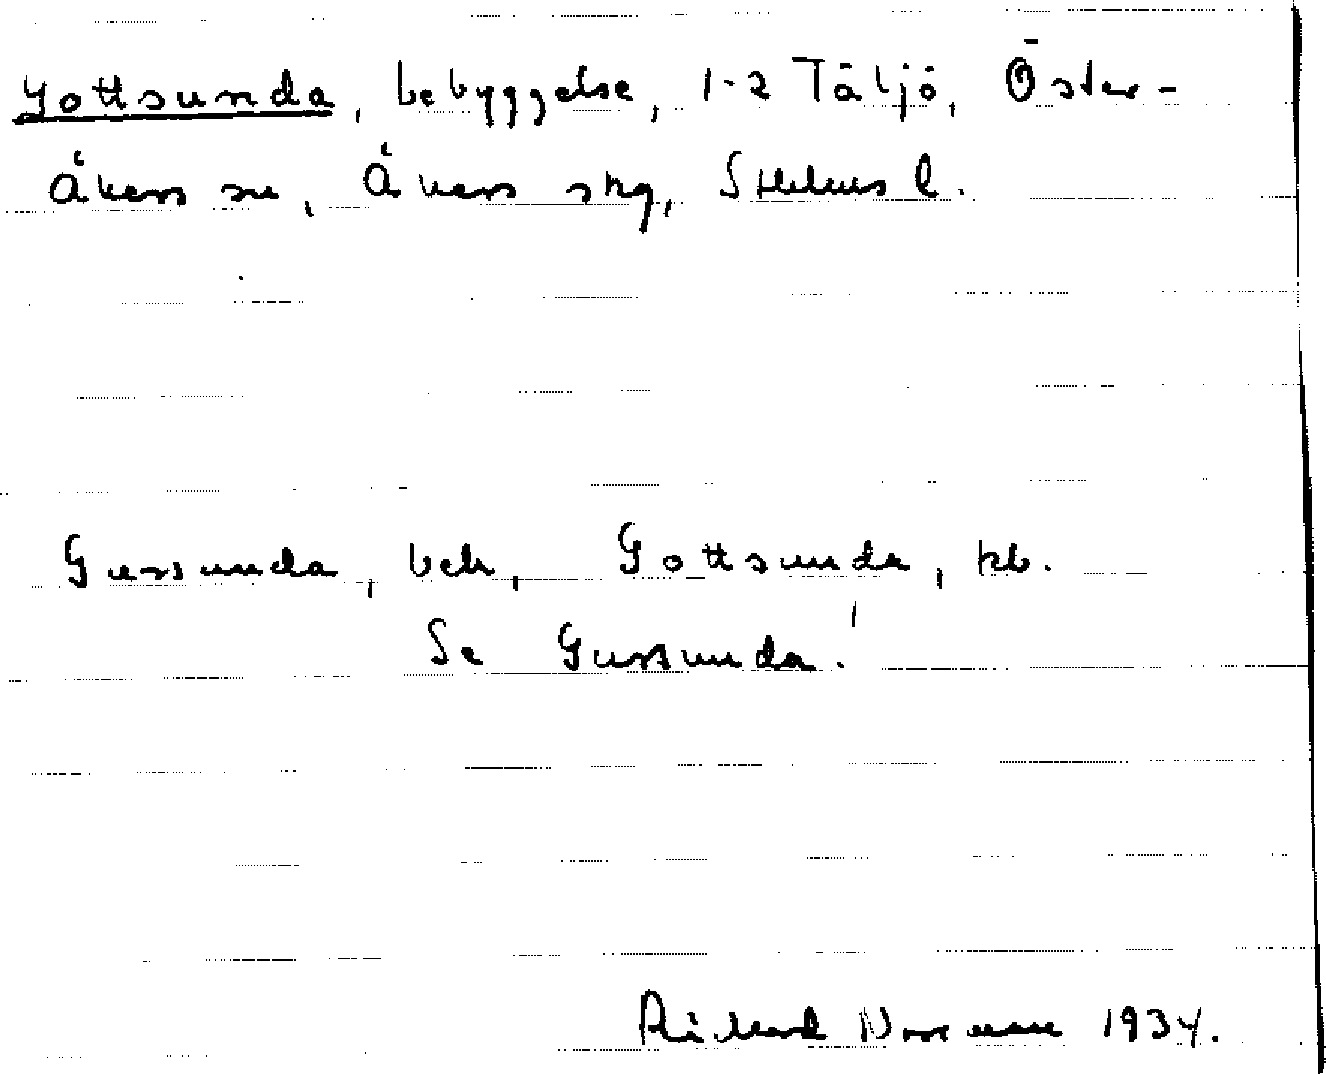 Gottsunda, bebyggelse, 1-2 Täljö, Öster-
Åkers sn, Åkers skg, Sthlms l.
Gurssunda, beh, Gottsunda, kb.
Se Gurssunda!
Rickard Norrman 1934.